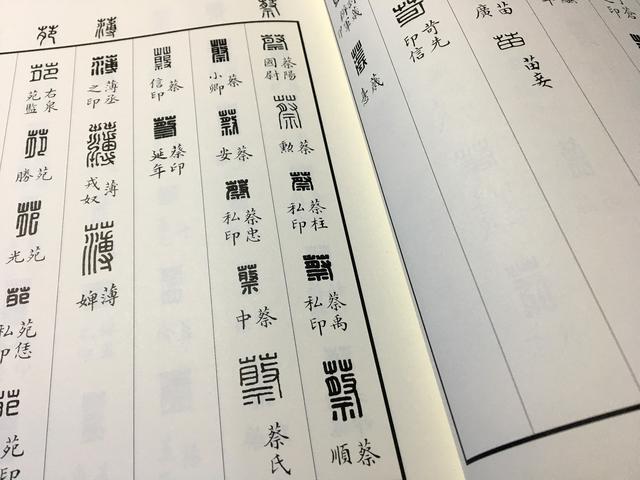 苗妾
苗廣
苛先印信
蔡
蔡陽國尉
蔡勲
蔡柱私印
蔡禹私印
蔡順
蔡小卿
蔡安
蔡忠私印
蔡中
蔡氏
蔡信印
蔡印延年
薄
薄丞之印
薄戎奴
薄婢
苑
右泉苑監
苑勝
苑光
苑恁私印
苑印